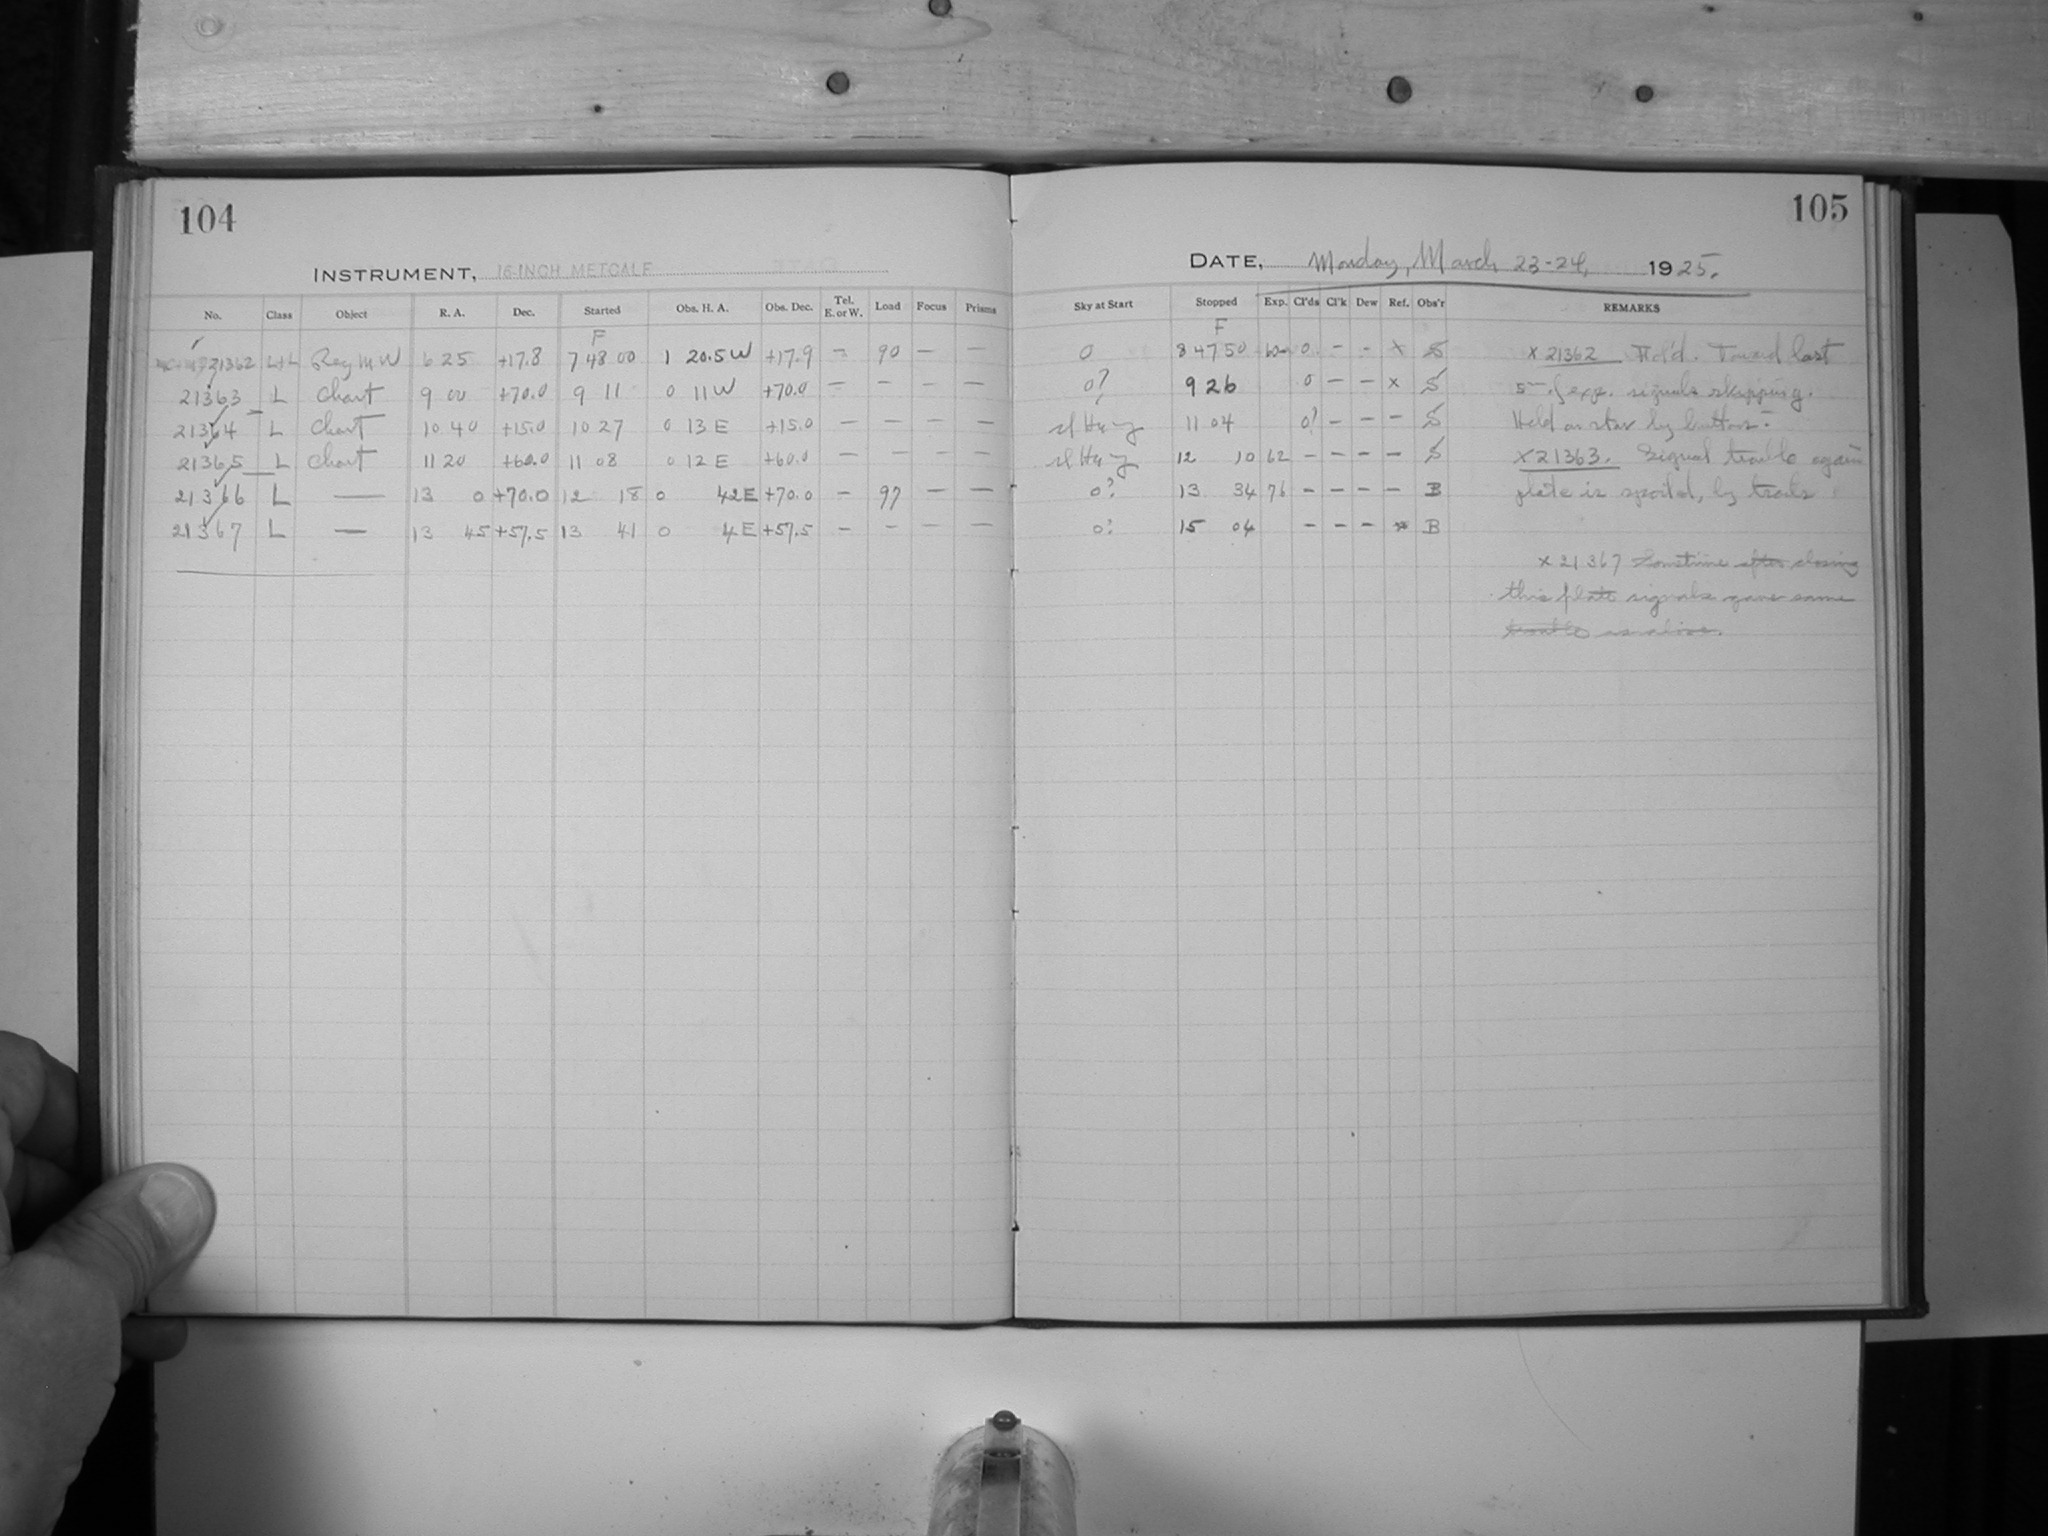 104
INSTRUMENT, 16-INCH METCALF
No. Class Object R. A. Dec. Started Obs. H. A. Obs. Dec. Tel. E. or W. Load Focus Prisms
F
21362 L+L Reg MW 6 25 +17.8 7 48 00 1 20.5 W +17.9 - 90 - -
21363 L Chart 9 00 +70.0 9 11 0 11 W +70.0 - - - -
21364 L Chart 10 40 +15.0 10 27 0 13 E +15.0 - - - -
21365 L Chart 11 20 +60.0 11 08 0 12 E +60.0 - - - -
21366 L — 13 0 +70.0 12 18 0 42 E +70.0 - 97 - -
21367 L — 13 45 +57.5 13 41 0 4 E +57.5 - - - -
105
DATE, Monday, March 23-24, 1925.
Sky at Start Stopped Exp. Cl'ds Cl'k Dew Ref. Obs'r REMARKS
F
0 8 47 50 0 - - x S x 21362 Toward last
0? 9 26 0 - - x S exp. signals skipping.
11 04 0? - - - S Held on star by button -
12 10 62 - - - - S x 21363. Signal trouble again
0? 13 34 76 - - - - B plate is spoiled, by trails
0? 15 04 - - - * B
x 21367 Sometime after closing
this plate signals gave same
trouble as above.